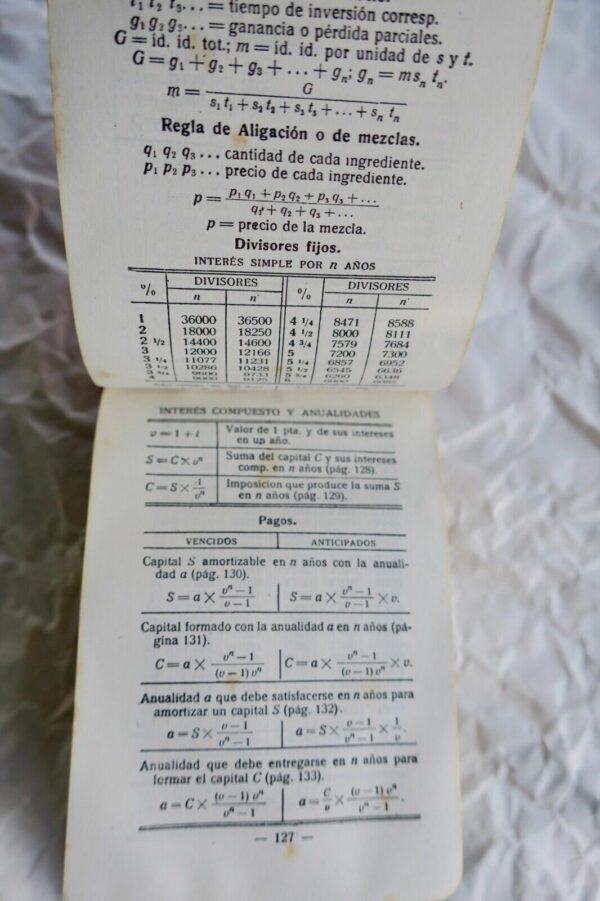 t₁ t₂ t₃... = tiempo de inversión corresp.
g₁ g₂ g₃... = ganancia o pérdida parciales.
G = id. id. tot.; m = id. id. por unidad de s y t.
G = g₁ + g₂ + g₃ + ... + gₙ; gₙ = m sₙ tₙ.
m = G / (s₁ t₁ + s₂ t₂ + s₃ t₃ + ... + sₙ tₙ)
Regla de Aligación o de mezclas.
q₁ q₂ q₃ ... cantidad de cada ingrediente.
p₁ p₂ p₃ ... precio de cada ingrediente.
p = (p₁ q₁ + p₂ q₂ + p₃ q₃ + ...) / (q₁ + q₂ + q₃ + ...)
p = precio de la mezcla.
Divisores fijos.
INTERÉS SIMPLE POR n AÑOS
% DIVISORES % DIVISORES
n n' n n'
1 36000 36500 4 1/4 8471 8588
2 18000 18250 4 1/2 8000 8111
2 1/2 14400 14600 4 3/4 7579 7684
3 12000 12166 5 7200 7300
3 1/4 11077 11231 5 1/4 6857 6952
3 1/2 10286 10428 5 1/2 6545 6636
3 3/4 9600 9733 5 3/4 6260 6348
4 9000 9125 6 6000 6085
INTERÉS COMPUESTO Y ANUALIDADES
v = 1 + i Valor de 1 pta. y de sus intereses
en un año.
S = C × vⁿ Suma del capital C y sus intereses
comp. en n años (pág. 128).
C = S × 1/vⁿ Imposicion que produce la suma S
en n años (pág. 129).
Pagos.
VENCIDOS ANTICIPADOS
Capital S amortizable en n años con la anuali-
dad a (pág. 130).
S = a × (vⁿ − 1)/(v − 1) S = a × (vⁿ − 1)/(v − 1) × v.
Capital formado con la anualidad a en n años (pá-
gina 131).
C = a × (vⁿ − 1)/((v − 1) vⁿ) C = a × (vⁿ − 1)/((v − 1) vⁿ) × v.
Anualidad a que debe satisfacerse en n años para
amortizar un capital S (pág. 132).
a = S × (v − 1)/(vⁿ − 1) a = S × (v − 1)/(vⁿ − 1) × 1/v.
Anualidad que debe entregarse en n años para
formar el capital C (pág. 133).
a = C × ((v − 1) vⁿ)/(vⁿ − 1) a = C/v × ((v − 1) vⁿ)/(vⁿ − 1).
— 127 —